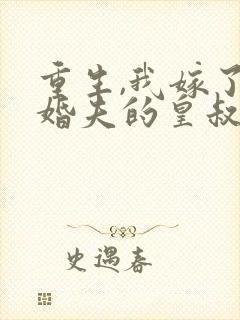 重生,我嫁了
婚夫的皇叔
史遇春